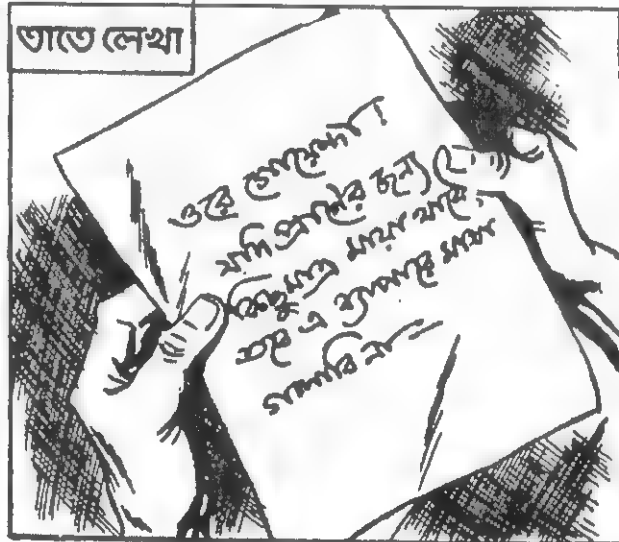 তাতে লেখা
ওরে গোয়েন্দা!
যদি প্রাণের জন্য
কিছুমাত্র মায়া থাকে,
তবে এ ব্যাপারে মাথা
গলাবি না—